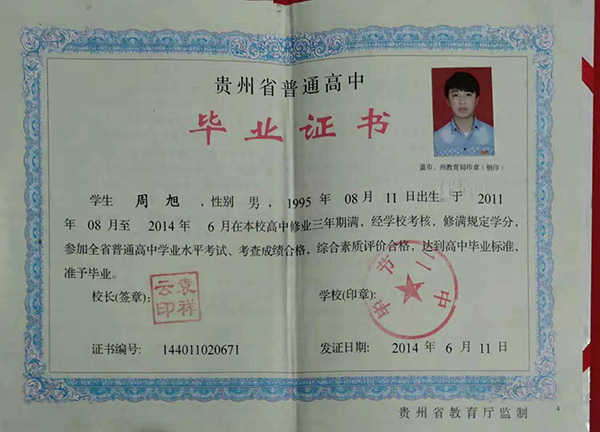 贵州省普通高中
毕业证书
盖市、州教育局印章(钢印)
学生 周旭 ,性别 男,1995 年 08 月 11 日出生。于 2011
年 08 月至 2014 年 6 月在本校高中修业三年期满,经学校考核,修满规定学分,
参加全省普通高中学业水平考试、考查成绩合格,综合素质评价合格,达到高中毕业标准,
准予毕业。
校长(签章): 袁祥云印
学校(印章): 毕节二中
证书编号: 144011020671
发证日期: 2014 年 6 月 11 日
贵州省教育厅监制